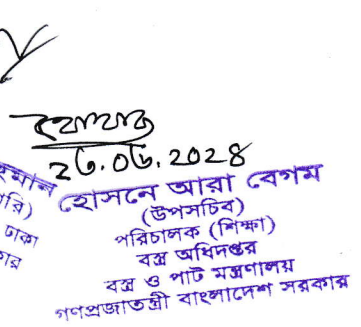 হোসনে আরা বেগম
(উপসচিব)
পরিচালক (শিক্ষা)
বস্ত্র অধিদপ্তর
বস্ত্র ও পাট মন্ত্রণালয়
গণপ্রজাতন্ত্রী বাংলাদেশ সরকার
ঢাকা